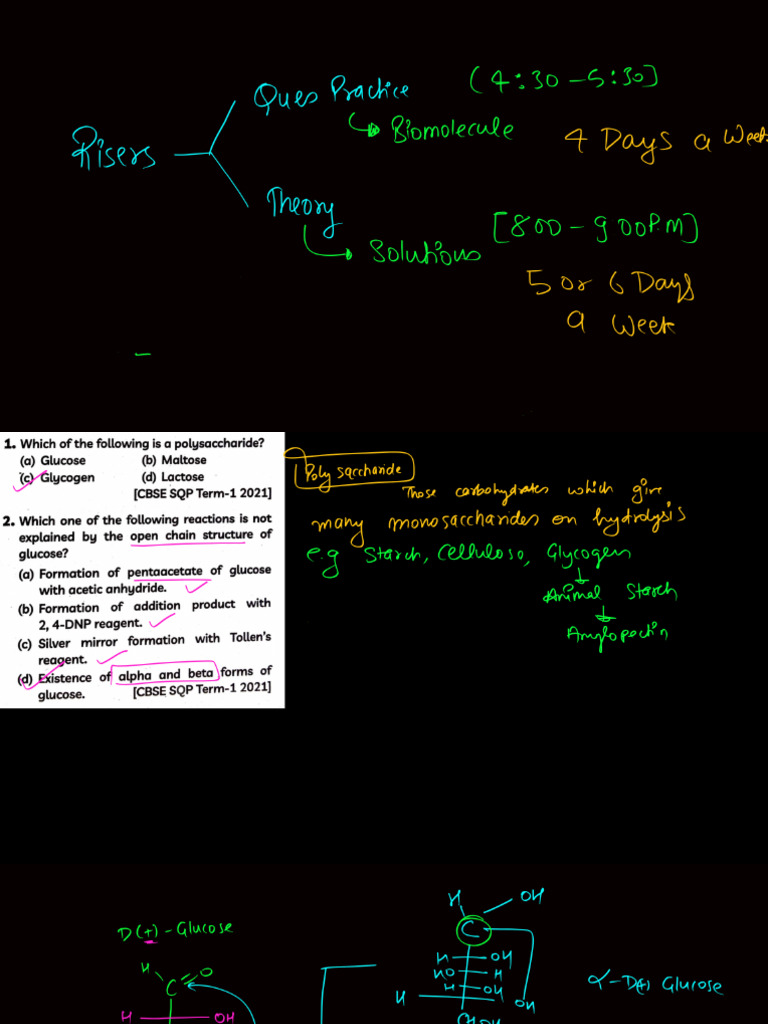 Ques Practice (4:30 - 5:30]
Biomolecule
4 Days a Week
Risers
Theory
[8 00 - 9 00 P.M]
Solutions
5 or 6 Days
a Week
1. Which of the following is a polysaccharide?
(a) Glucose (b) Maltose
(c) Glycogen (d) Lactose
[CBSE SQP Term-1 2021]
2. Which one of the following reactions is not
explained by the open chain structure of
glucose?
(a) Formation of pentaacetate of glucose
with acetic anhydride.
(b) Formation of addition product with
2, 4-DNP reagent.
(c) Silver mirror formation with Tollen's
reagent.
(d) Existence of alpha and beta forms of
glucose. [CBSE SQP Term-1 2021]
Poly saccharide
Those carbohydrates which give
many monosaccharides on hydrolysis
e.g Starch, Celluloso, Glycogen
Animal Starch
Amylopectin
D(+) - Glucose
H C O
H OH
H OH
C
H OH
HO H
H OH
H OH
CH2OH
α-D(+) Glucose